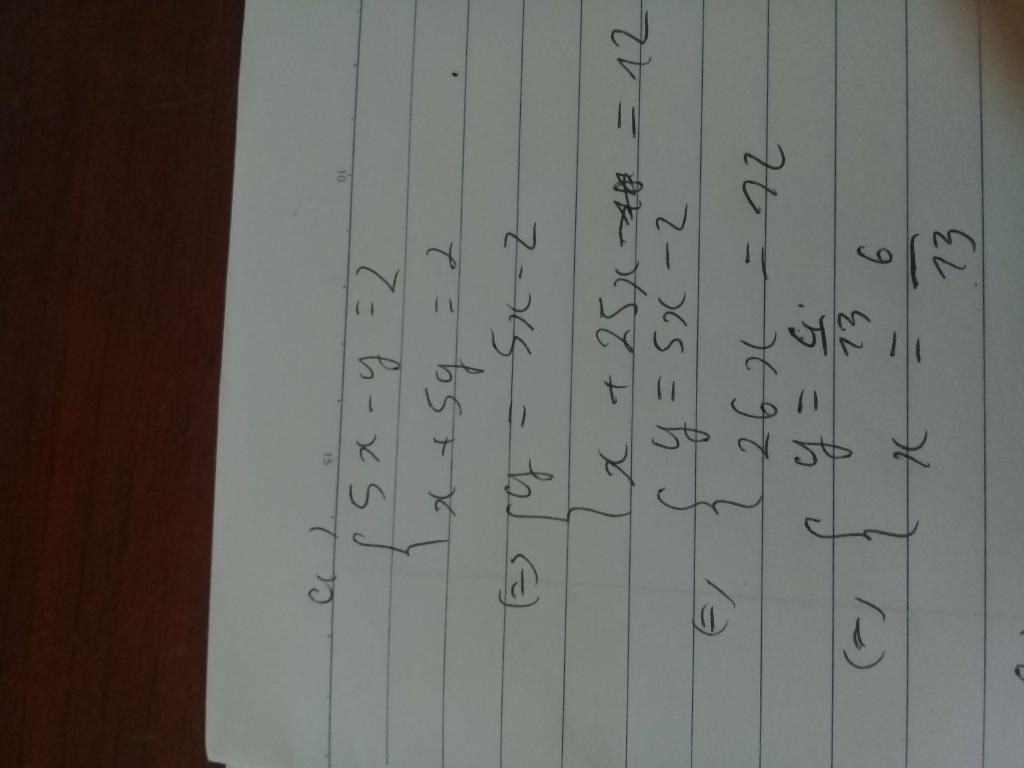 a)
{ 5x - y = 2
x + 5y = 2
(=) { y = 5x - 2
x + 25x = 12
(=) { y = 5x - 2
26x = 12
(=) { y = 4/13
x = 6/13